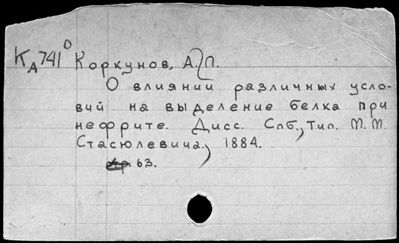 КА741° Коркунов, А.П.
О влиянии различных усло-
вий на выделение белка при
нефрите. Дисс. Спб., Тип. М.М.
Стасюлевича, 1884.
63.